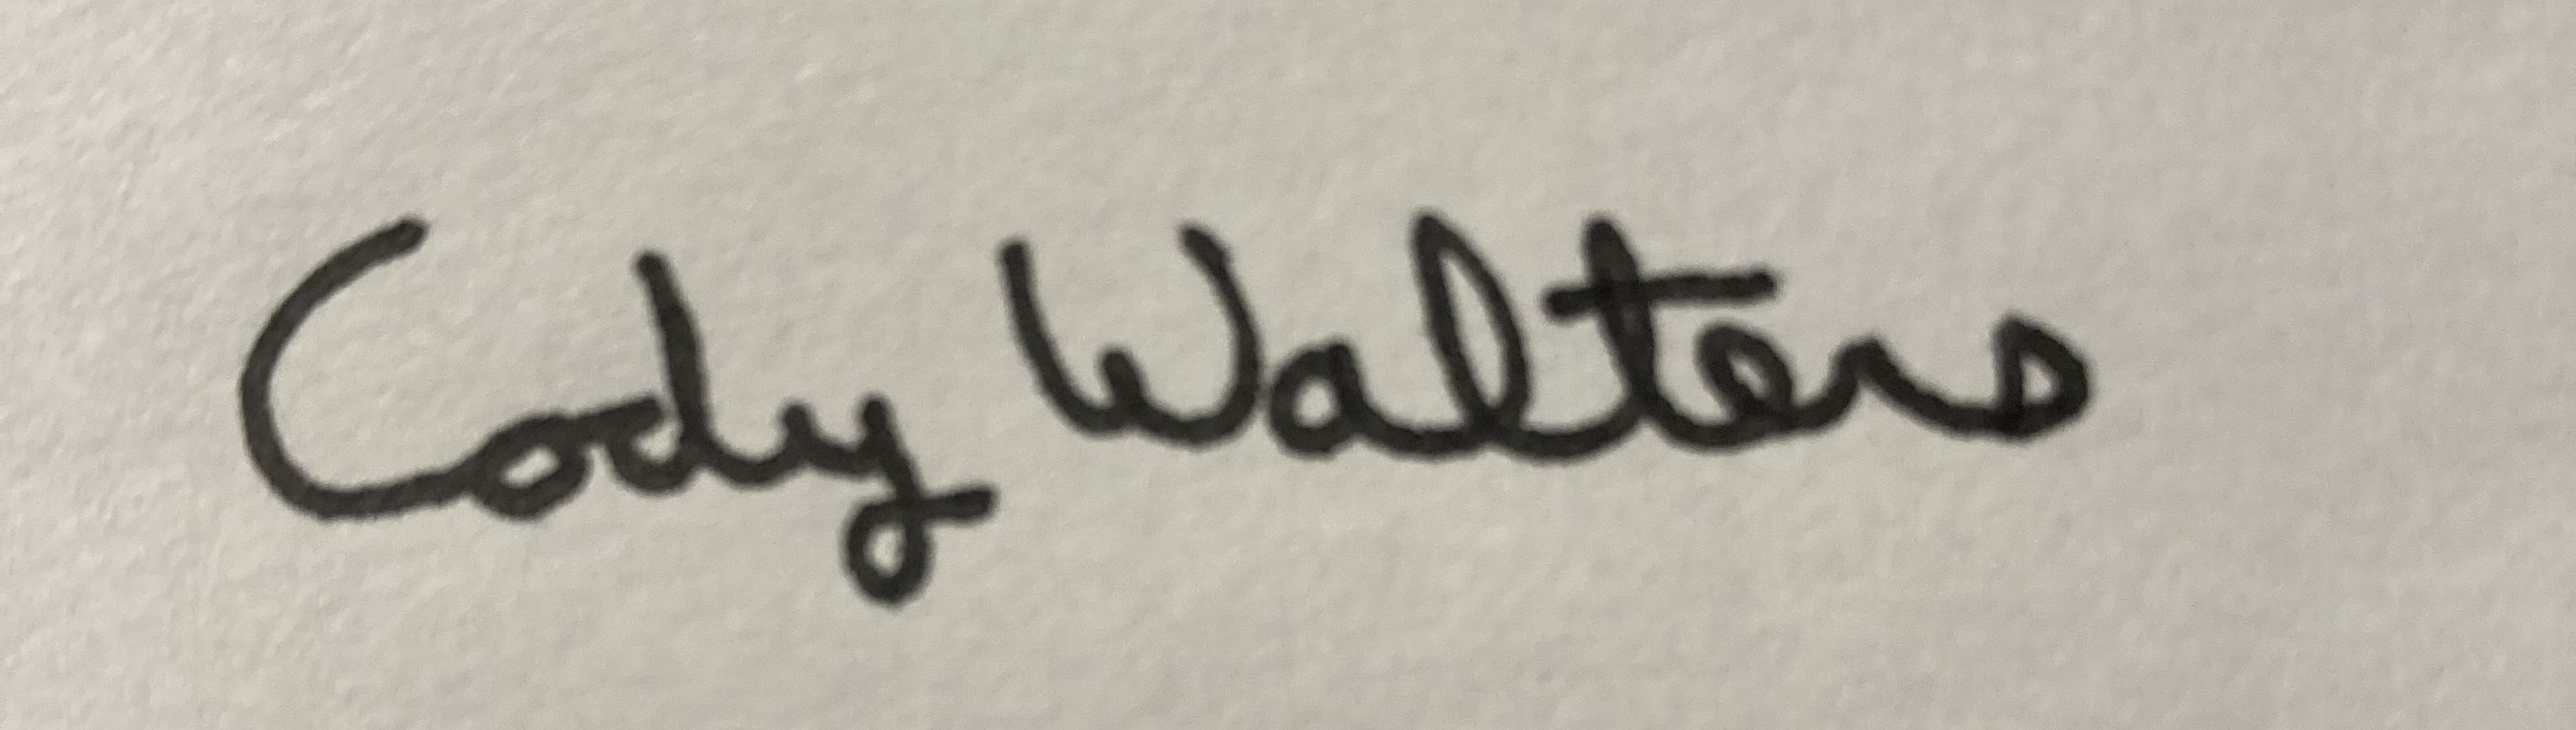 Cody Walters